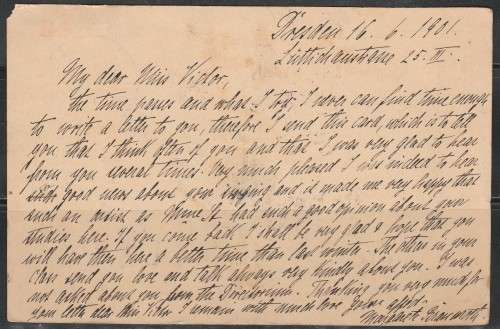 Dresden 16. 6. 1901.
Lüttichaustrasse 25. III.
My dear Miss Victor,
the time passes and what I try, I never can find time enough
to write a letter to you, therefore I send this card, which is to tell
you that I think often of you and that I was very glad to hear
from you several times. Very much pleased I was indeed to hear
good news about your singing and it made me very happy that
such an artist as Mme. had such a good opinion about your
studies here. If you come back I shall be very glad & hope that you
will have then here a better time than last winter. The others in your
class send you love and talk always very kindly about you. I was
not asked about you from the Directorium. Thanking you very much for
your letter dear Miss Victor I remain with much love yours affect.
Margareth